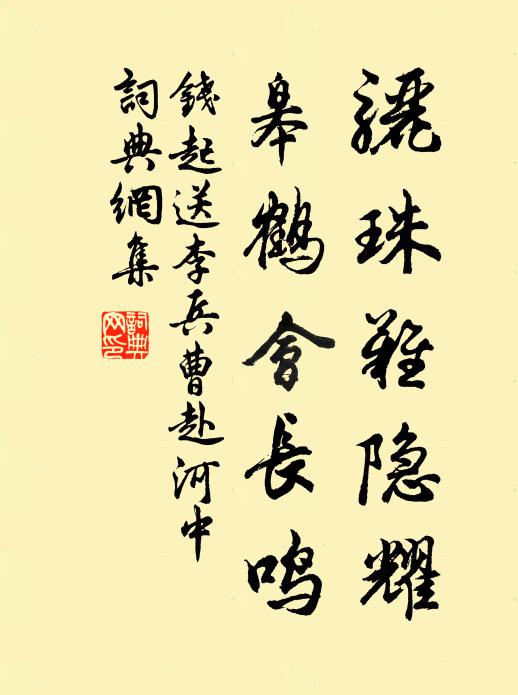 驪珠難隐耀
皋鶴會長鳴
錢起送李兵曹赴河中
詞典網集
詞典网印